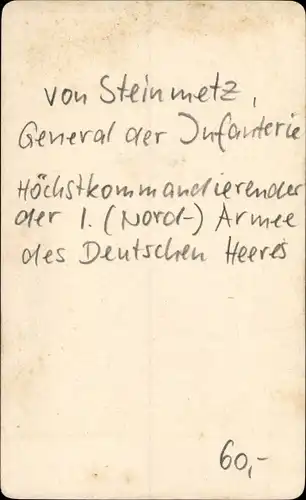 von Steinmetz,
General der Infanterie
Höchstkommandierender
der 1. (Nord-) Armee
des Deutschen Heeres
60,-